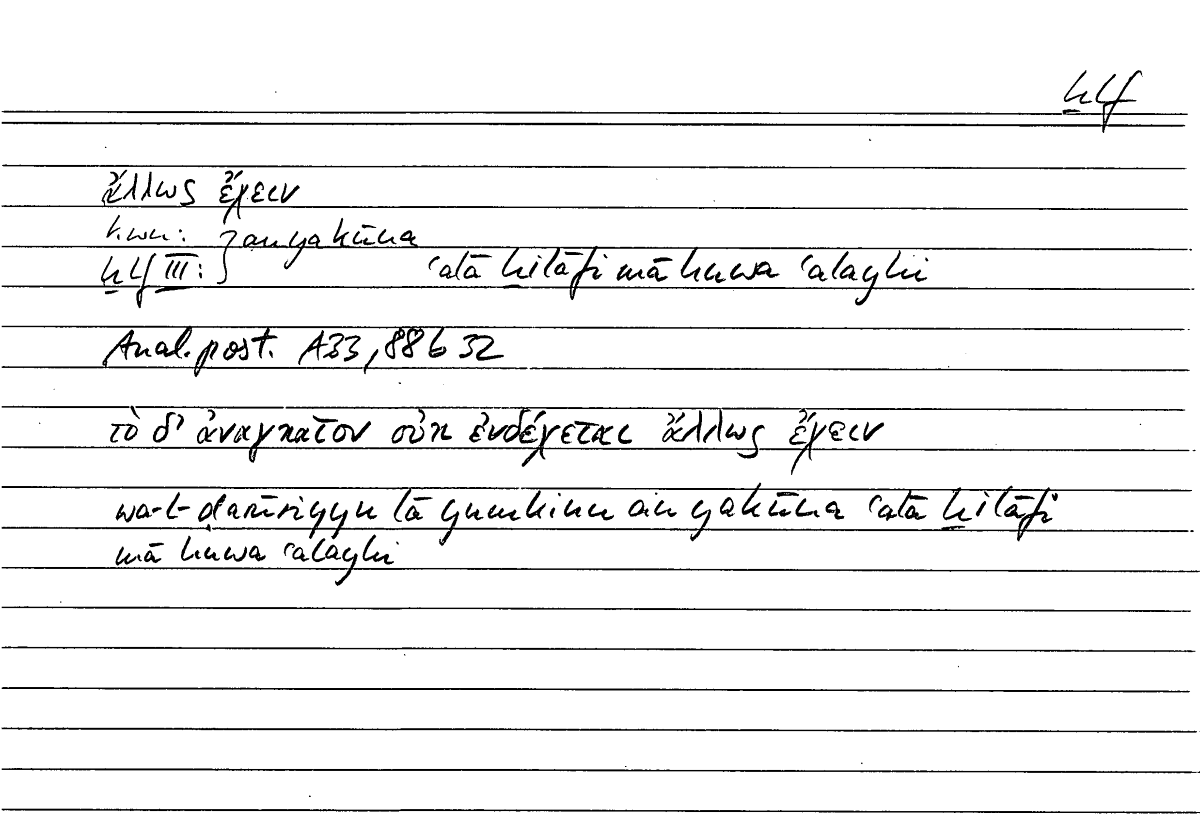 ḫlf
ἄλλως ἔχειν
kwn: } an yakūna
ḫlf III: } ʿalā ḫilāfi mā huwa ʿalayhi
Anal. post. A33, 88b32
τὸ δ' ἀναγκαῖον οὐκ ἐνδέχεται ἄλλως ἔχειν
wa-l-ḍarūriyyu lā yumkinu an yakūna ʿalā ḫilāfi
mā huwa ʿalayhi